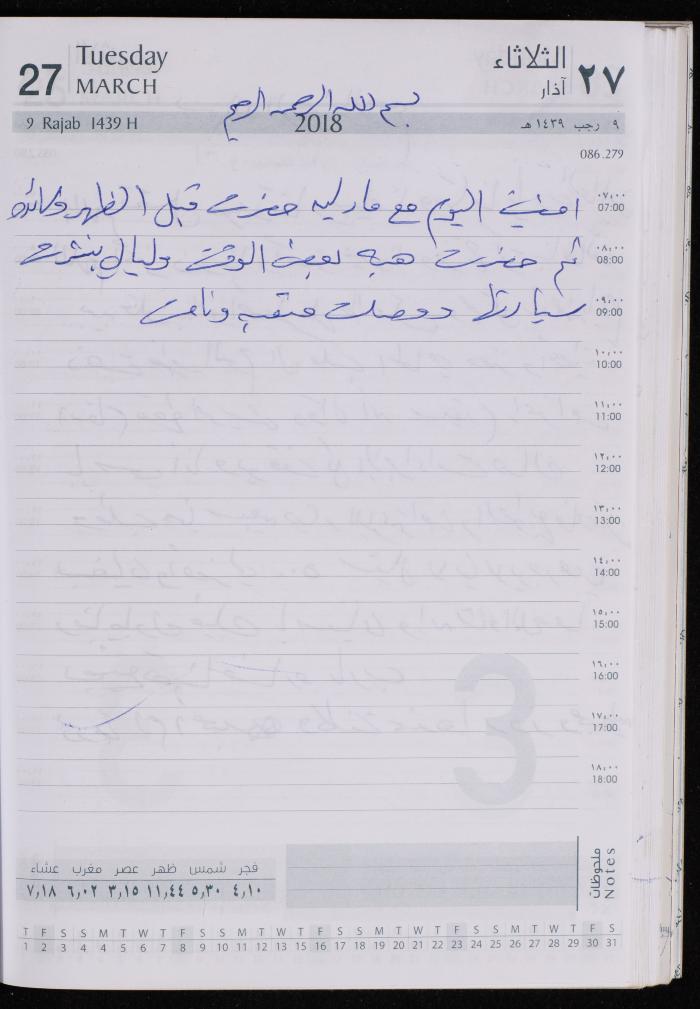 27 Tuesday الثلاثاء ٢٧
MARCH آذار
بسم الله الرحمن الرحيم
9 Rajab 1439 H 2018 ٩ رجب ١٤٣٩ هـ
086.279
٠٧,٠٠
07:00 امضيت اليوم مع مارليه حضرت قبل الظهر
٠٨,٠٠
08:00 ثم حضرت هبه بعض الوقت وليالي بنشرت
٠٩,٠٠
09:00 سيارتها ووصلت متعبه ونامت
١٠,٠٠
10:00
١١,٠٠
11:00
١٢,٠٠
12:00
١٣,٠٠
13:00
١٤,٠٠
14:00
١٥,٠٠
15:00
١٦,٠٠
16:00
١٧,٠٠
17:00
١٨,٠٠
18:00
3
ملحوظات
Notes
فجر شمس ظهر عصر مغرب عشاء
٤,١٠ ٥,٣٠ ١١,٤٤ ٣,١٥ ٦,٠٢ ٧,١٨
T F S S M T W T F S S M T W T F S S M T W T F S S M T W T F S
1 2 3 4 4 5 6 7 8 9 10 11 12 13 14 15 16 17 18 19 20 21 22 23 24 25 26 27 28 29 30 31